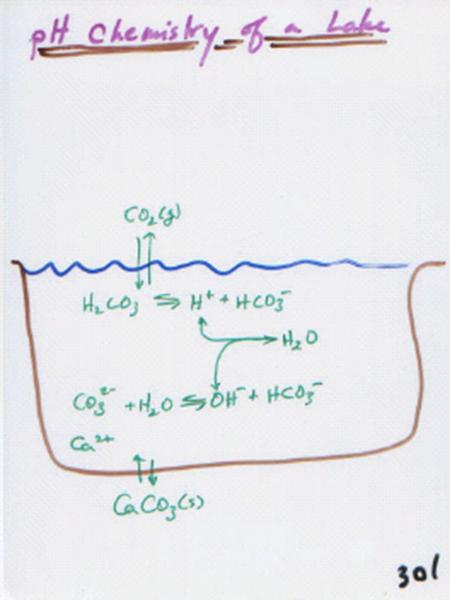 pH Chemistry of a Lake
CO₂(g)
H₂CO₃ ⇌ H⁺ + HCO₃⁻
H₂O
CO₃²⁻ + H₂O ⇌ OH⁻ + HCO₃⁻
Ca²⁺
CaCO₃(s)
301